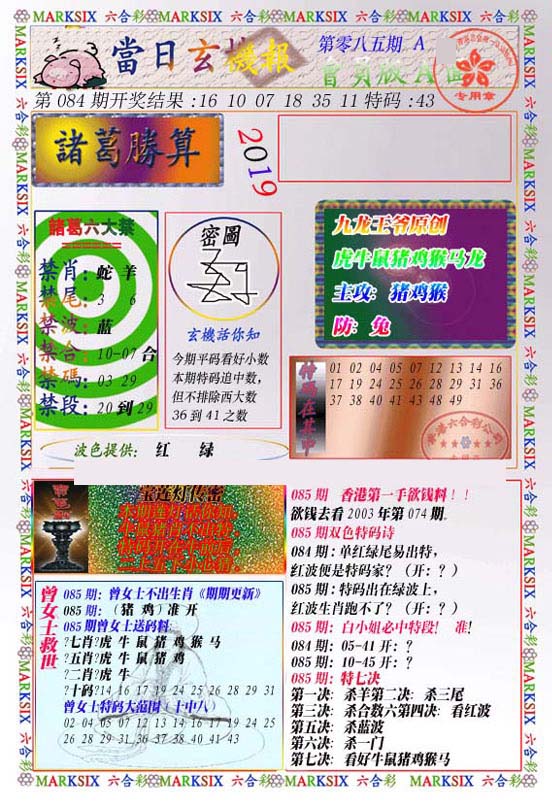 MARKSIX 六合彩 MARKSIX 六合彩 MARKSIX 六合彩 MARKSIX 六合彩
當日玄機報
第零八五期 A
會員版A面
专用章
第084期开奖结果:16 10 07 18 35 11特码:43
諸葛勝算
2019
諸葛六大禁
禁肖: 蛇 羊
禁尾: 3 6
禁波: 蓝
禁合: 10-07 合
禁碼: 03 29
禁段: 20到29
密圖
玄機話你知
今期平码看好小数
本期特码追中数,
但不排除西大数
36到41之数
九龙王爷原创
虎牛鼠猪鸡猴马龙
主攻: 猪鸡猴
防: 兔
特碼在其中
01 02 04 05 07 12 13 14 16
17 19 24 25 26 28 29 31 36
37 38 40 41 43 48 49
波色提供: 红 绿
宝莲灯传密
曾女士救世
085期: 曾女士不出生肖《期期更新》
085期: (猪 鸡)准开
085期曾女士送码料:
?七肖?虎 牛 鼠 猪 鸡 猴 马
?五肖?虎 牛 鼠 猪 鸡
?二肖?虎 牛
?十码?14 16 17 19 24 25 26 28 29 31
曾女士特码大范围(十中八)
02 04 05 07 12 13 14 16 17 19 24 25
26 28 29 31 36 37 38 40 41 43
085期 香港第一手欲钱料!!
欲钱去看2003年第074期.
085期双色特码诗
084期:单红绿尾易出特,
红波便是特码家? (开: ? )
085期: 特码出在绿波上,
红波生肖跑不了? (开: ? )
085期: 白小姐必中特段! 准!
084期: 05-41 开: ?
085期: 10-45 开: ?
085期: 特七决
第一决: 杀羊第二决: 杀三尾
第三决: 杀合数六第四决: 看红波
第五决: 杀蓝波
第六决: 杀一门
第七决: 看好牛鼠猪鸡猴马
MARKSIX 六合彩 MARKSIX 六合彩 MARKSIX 六合彩 MARKSIX 六合彩